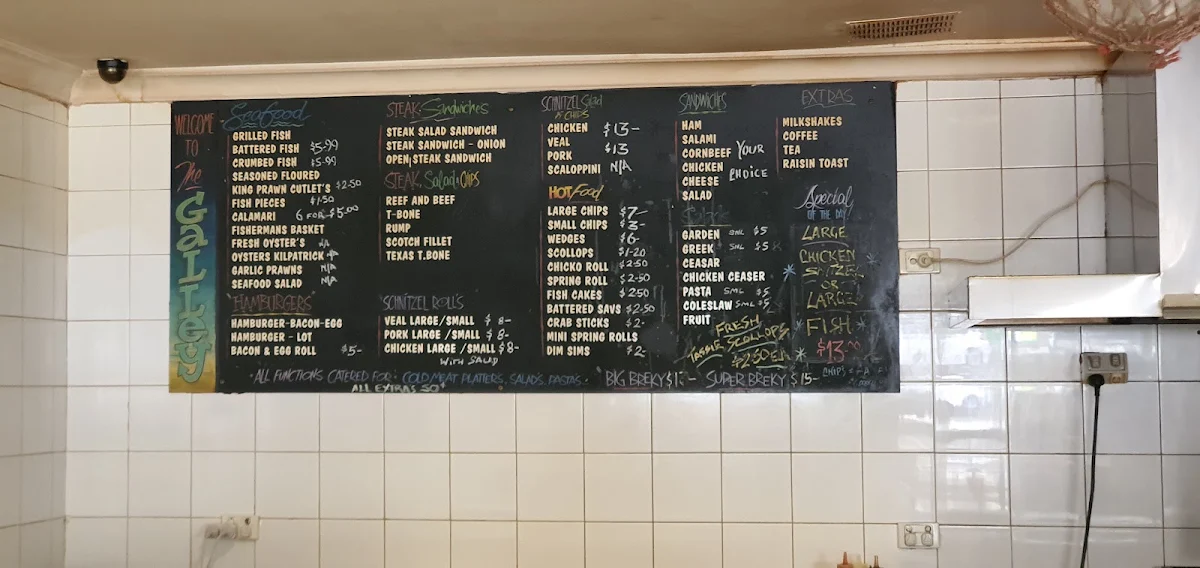 WELCOME
TO
The
GaLLey
Seafood
GRILLED FISH
BATTERED FISH $5-99
CRUMBED FISH $5-99
SEASONED FLOURED
KING PRAWN CUTLET'S $2-50
FISH PIECES $1-50
CALAMARI 6 FOR $5-00
FISHERMANS BASKET
FRESH OYSTER'S N/A
OYSTERS KILPATRICK
GARLIC PRAWNS N/A
SEAFOOD SALAD N/A
HAMBURGERS
HAMBURGER-BACON-EGG
HAMBURGER - LOT
BACON & EGG ROLL $5-
STEAK Sandwiches
STEAK SALAD SANDWICH
STEAK SANDWICH - ONION
OPEN STEAK SANDWICH
STEAK, Salad & CHIPS
REEF AND BEEF
T-BONE
RUMP
SCOTCH FILLET
TEXAS T.BONE
SCHNITZEL ROLL'S
VEAL LARGE/SMALL $8-
PORK LARGE/SMALL $8-
CHICKEN LARGE/SMALL $8-
WITH SALAD
SCHNITZEL Salad
& CHIPS
CHICKEN $13-
VEAL $13
PORK
SCALOPPINI N/A
HOT Food
LARGE CHIPS $7-
SMALL CHIPS $3-
WEDGES $6-
SCOLLOPS $1-20
CHICKO ROLL $2-50
SPRING ROLL $2-50
FISH CAKES $2-50
BATTERED SAVS $2-50
CRAB STICKS $2-
MINI SPRING ROLLS
DIM SIMS $2-
SANDWICHES
HAM
SALAMI
CORNBEEF YOUR
CHICKEN CHOICE
CHEESE
SALAD
GARDEN SML $5
GREEK SML $5
CEASAR
CHICKEN CEASER
PASTA SML $5
COLESLAW SML $5
FRUIT
FRESH
TASSIE SCOLLOPS
$2-50EA
EXTRAS
MILKSHAKES
COFFEE
TEA
RAISIN TOAST
Special
OF THE DAY
LARGE
CHICKEN
SNITZEL
OR
LARGE
FISH
$13-00
·ALL FUNCTIONS CATERED FOR: COLD MEAT PLATTERS, SALADS, PASTAS. BIG BREKY SUPER BREKY $15-
ALL EXTRAS 50¢